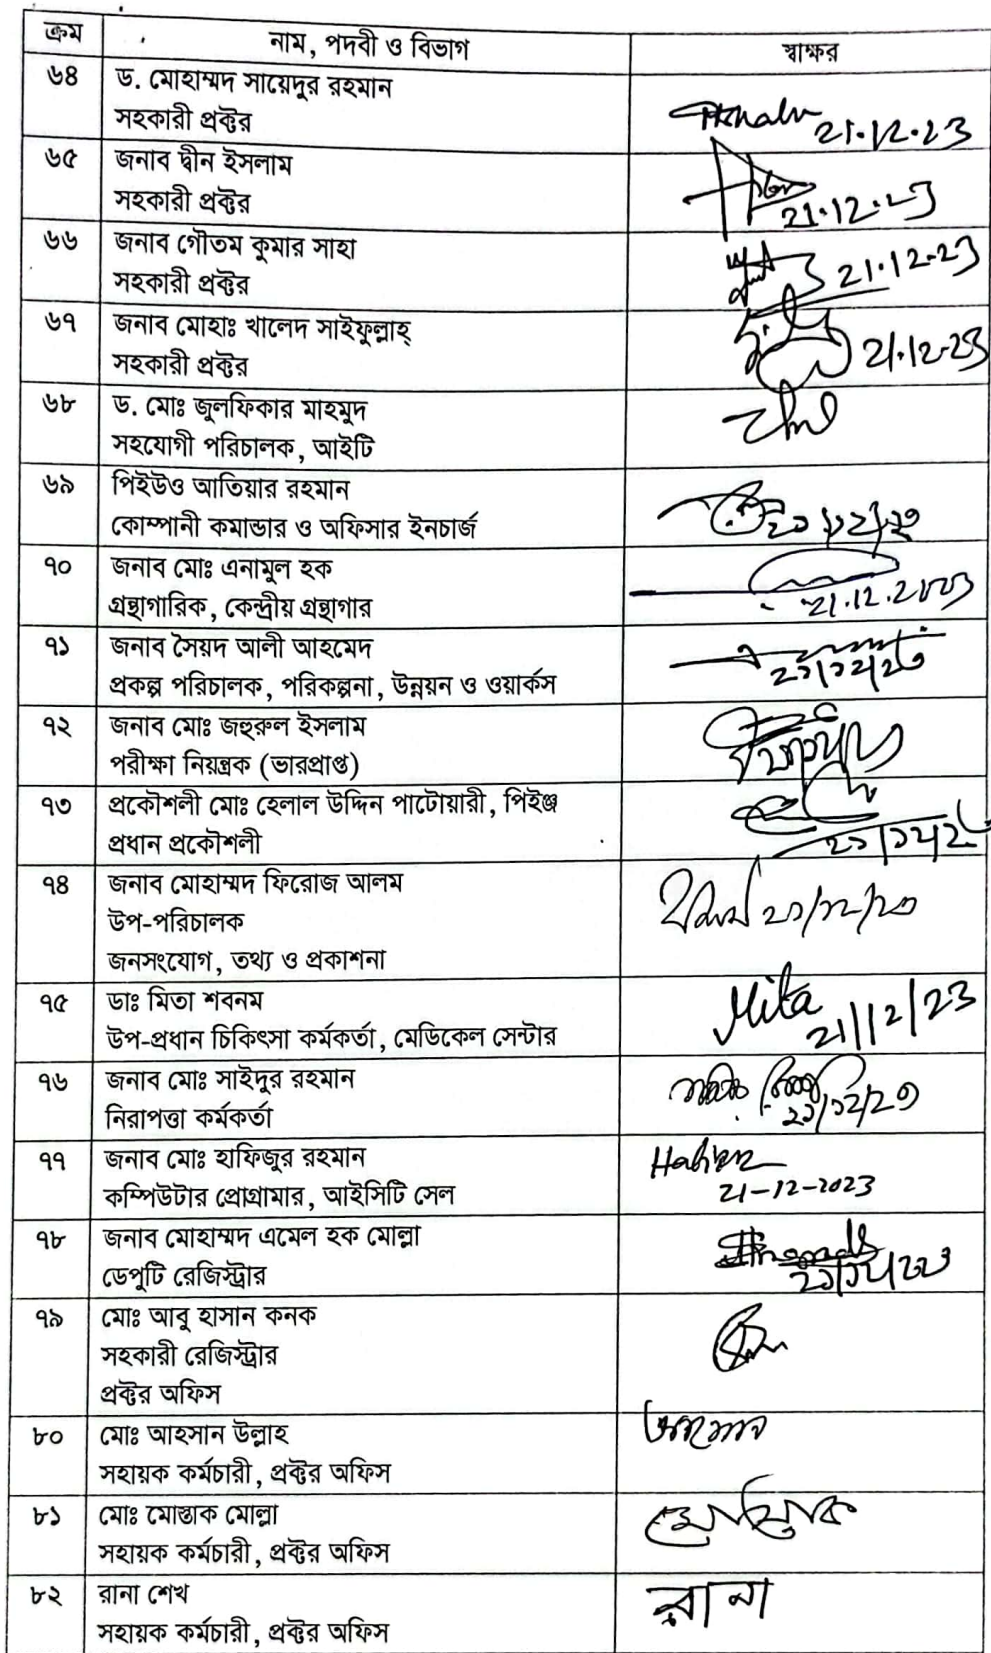 ক্রম নাম, পদবী ও বিভাগ স্বাক্ষর
৬৪ ড. মোহাম্মদ সায়েদুর রহমান
সহকারী প্রক্টর
21.12.23
৬৫ জনাব দ্বীন ইসলাম
সহকারী প্রক্টর
21.12.23
৬৬ জনাব গৌতম কুমার সাহা
সহকারী প্রক্টর
21.12.23
৬৭ জনাব মোহাঃ খালেদ সাইফুল্লাহ্
সহকারী প্রক্টর
21.12.23
৬৮ ড. মোঃ জুলফিকার মাহমুদ
সহযোগী পরিচালক, আইটি
৬৯ পিইউও আতিয়ার রহমান
কোম্পানী কমান্ডার ও অফিসার ইনচার্জ
২১/১২/২৩
৭০ জনাব মোঃ এনামুল হক
গ্রন্থাগারিক, কেন্দ্রীয় গ্রন্থাগার
21.12.2023
৭১ জনাব সৈয়দ আলী আহমেদ
প্রকল্প পরিচালক, পরিকল্পনা, উন্নয়ন ও ওয়ার্কস
২১/১২/২৩
৭২ জনাব মোঃ জহুরুল ইসলাম
পরীক্ষা নিয়ন্ত্রক (ভারপ্রাপ্ত)
৭৩ প্রকৌশলী মোঃ হেলাল উদ্দিন পাটোয়ারী, পিইঞ্জ
প্রধান প্রকৌশলী
২১/১২/২৩
৭৪ জনাব মোহাম্মদ ফিরোজ আলম
উপ-পরিচালক
২১/১২/২৩
জনসংযোগ, তথ্য ও প্রকাশনা
৭৫ ডাঃ মিতা শবনম Mita
উপ-প্রধান চিকিৎসা কর্মকর্তা, মেডিকেল সেন্টার 21/12/23
৭৬ জনাব মোঃ সাইদুর রহমান
নিরাপত্তা কর্মকর্তা
২১/১২/২৩
৭৭ জনাব মোঃ হাফিজুর রহমান
কম্পিউটার প্রোগ্রামার, আইসিটি সেল 21-12-2023
৭৮ জনাব মোহাম্মদ এমেল হক মোল্লা
ডেপুটি রেজিস্ট্রার
২১/১২/২০২৩
৭৯ মোঃ আবু হাসান কনক
সহকারী রেজিস্ট্রার
প্রক্টর অফিস
৮০ মোঃ আহসান উল্লাহ আহসান
সহায়ক কর্মচারী, প্রক্টর অফিস
৮১ মোঃ মোস্তাক মোল্লা মোস্তাক
সহায়ক কর্মচারী, প্রক্টর অফিস
৮২ রানা শেখ রানা
সহায়ক কর্মচারী, প্রক্টর অফিস